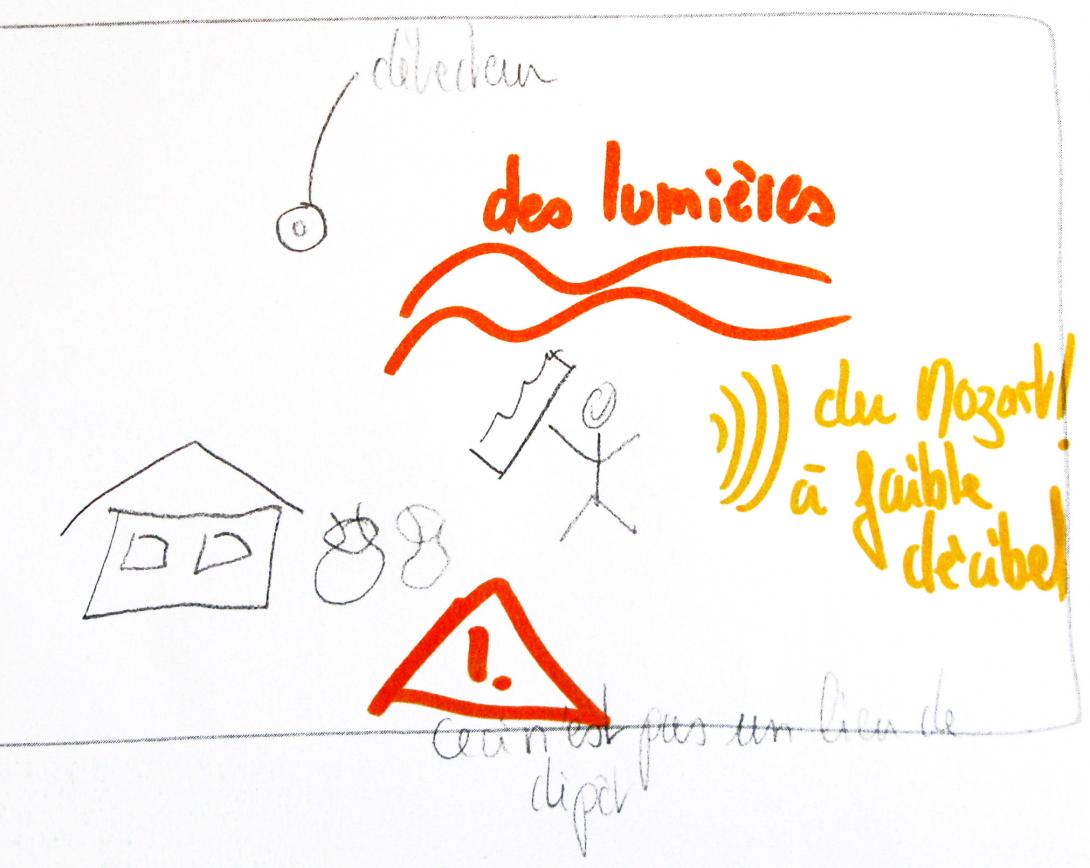 détecteur
des lumières
du Mozart!
à faible
décibel
!
ceci n'est pas un lieu de
dépôt